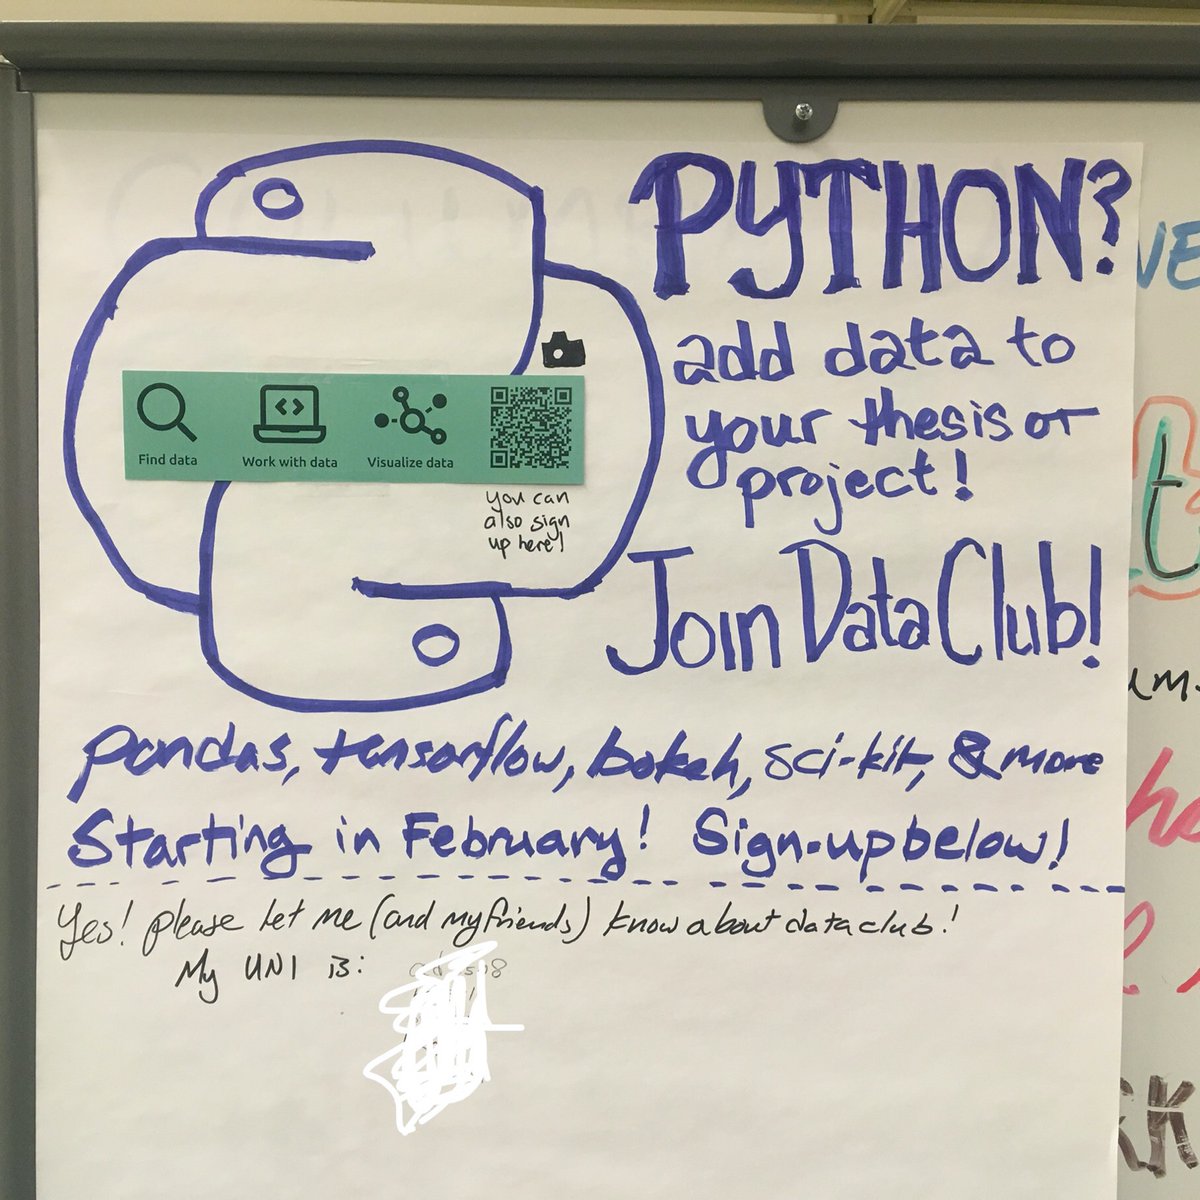 PYTHON?
add data to
your thesis or
project!
Find data
Work with data
Visualize data
you can
also sign
up here!
Join Data Club!
pandas, tensorflow, bokeh, sci-kit, & more
Starting in February! Sign-up below!
Yes! please let me (and my friends) know about data club!
My UNI is: